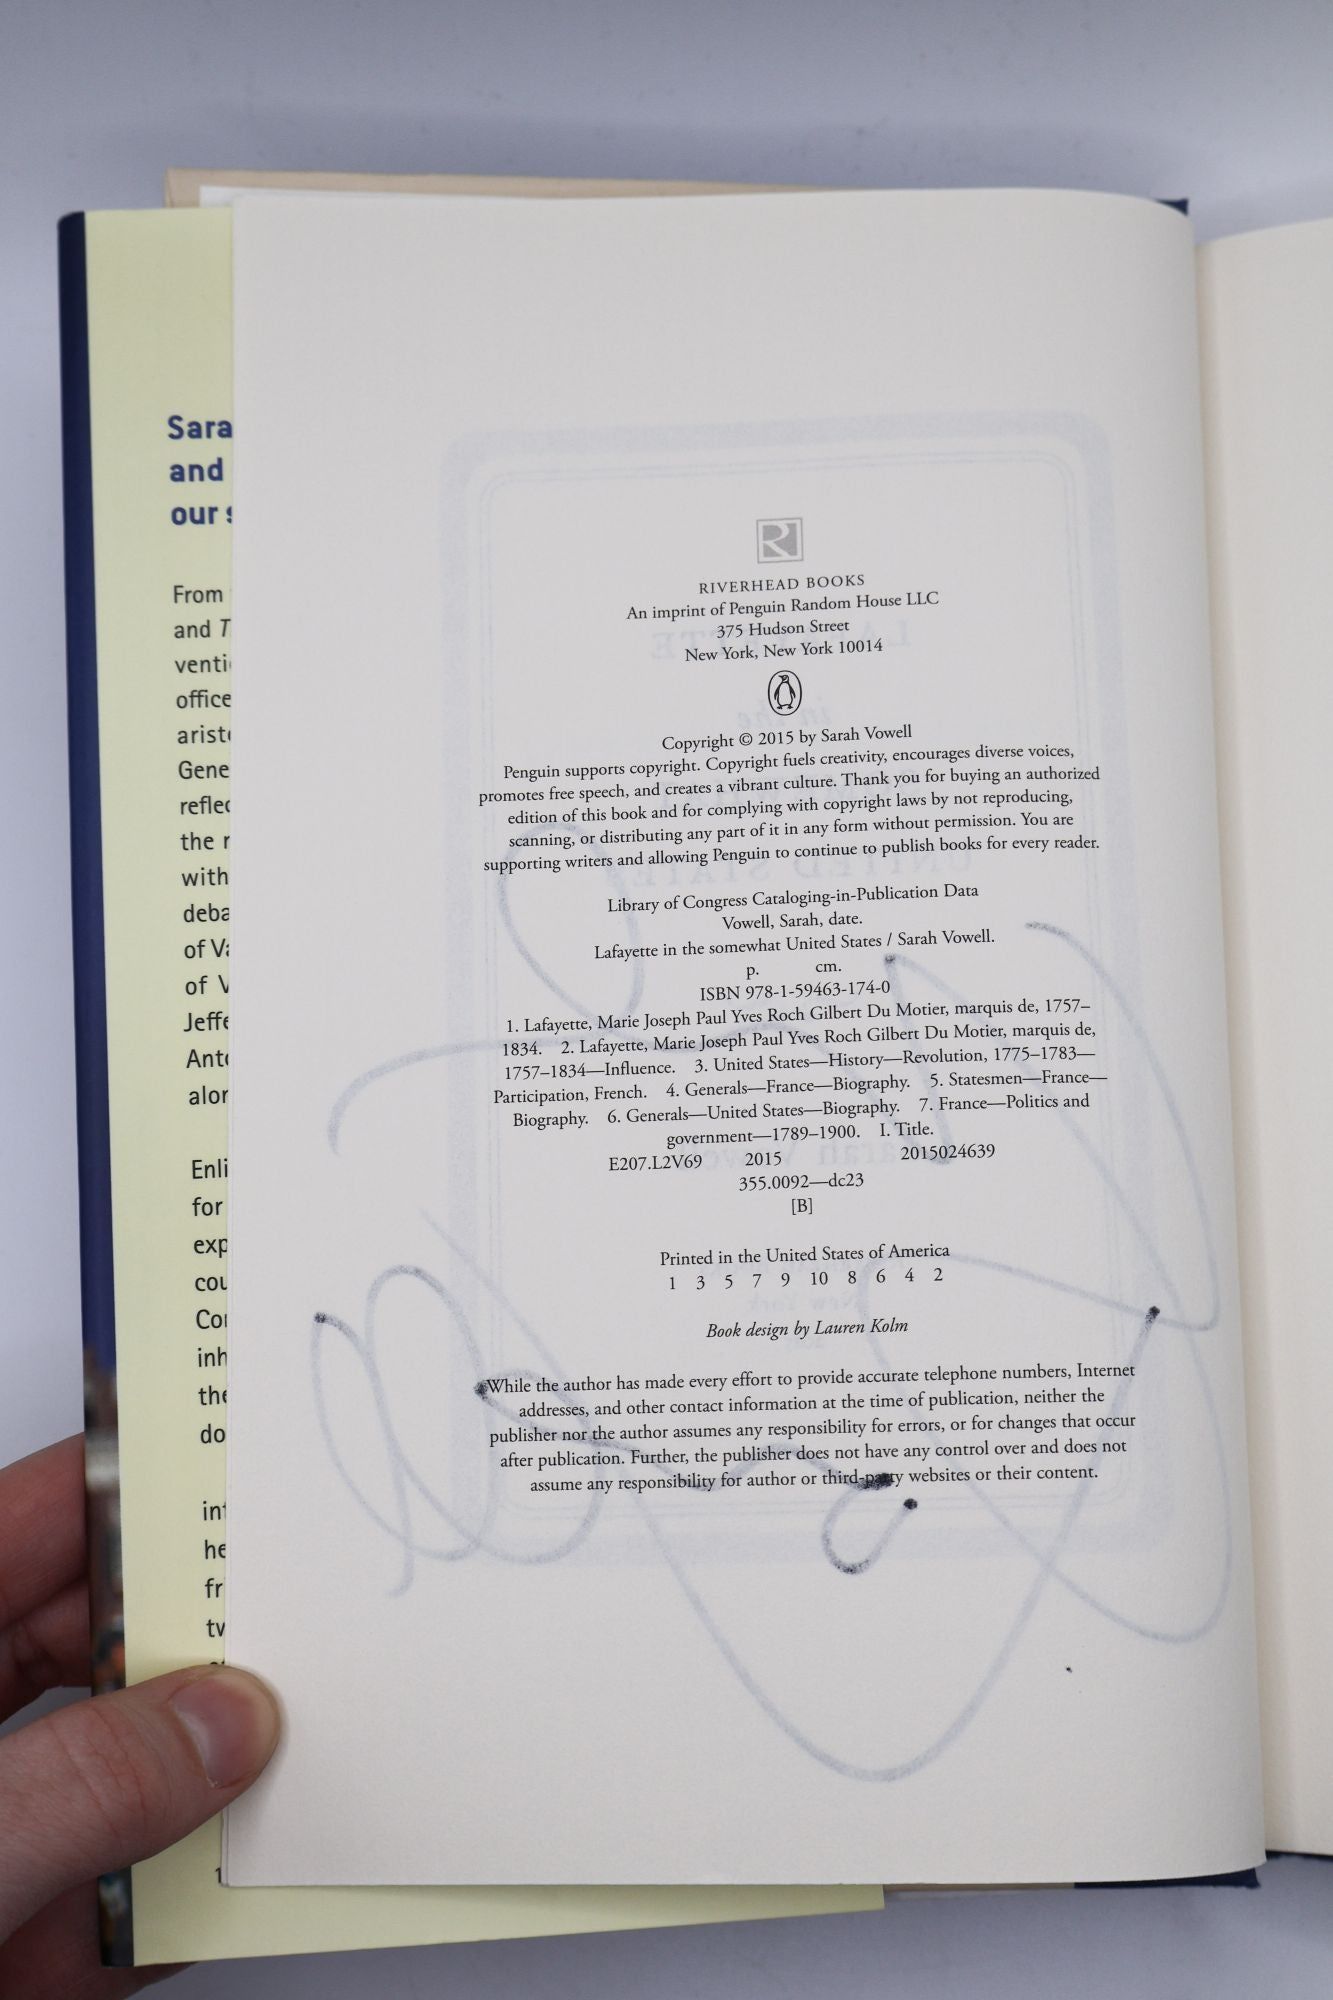 Sara
and
our s
From
and T
venti
office
aristo
Gene
reflec
the r
with
deba
of Va
of V
Jeffe
Anto
alon
Enli
for
exp
cou
Con
inh
the
do
int
he
fri
tw
1
R
RIVERHEAD BOOKS
An imprint of Penguin Random House LLC
375 Hudson Street
New York, New York 10014
Copyright © 2015 by Sarah Vowell
Penguin supports copyright. Copyright fuels creativity, encourages diverse voices,
promotes free speech, and creates a vibrant culture. Thank you for buying an authorized
edition of this book and for complying with copyright laws by not reproducing,
scanning, or distributing any part of it in any form without permission. You are
supporting writers and allowing Penguin to continue to publish books for every reader.
Library of Congress Cataloging-in-Publication Data
Vowell, Sarah, date.
Lafayette in the somewhat United States / Sarah Vowell.
p. cm.
ISBN 978-1-59463-174-0
1. Lafayette, Marie Joseph Paul Yves Roch Gilbert Du Motier, marquis de, 1757–
1834. 2. Lafayette, Marie Joseph Paul Yves Roch Gilbert Du Motier, marquis de,
1757–1834—Influence. 3. United States—History—Revolution, 1775–1783—
Participation, French. 4. Generals—France—Biography. 5. Statesmen—France—
Biography. 6. Generals—United States—Biography. 7. France—Politics and
government—1789–1900. I. Title.
E207.L2V69 2015 2015024639
355.0092—dc23
[B]
Printed in the United States of America
1 3 5 7 9 10 8 6 4 2
Book design by Lauren Kolm
While the author has made every effort to provide accurate telephone numbers, Internet
addresses, and other contact information at the time of publication, neither the
publisher nor the author assumes any responsibility for errors, or for changes that occur
after publication. Further, the publisher does not have any control over and does not
assume any responsibility for author or third-party websites or their content.